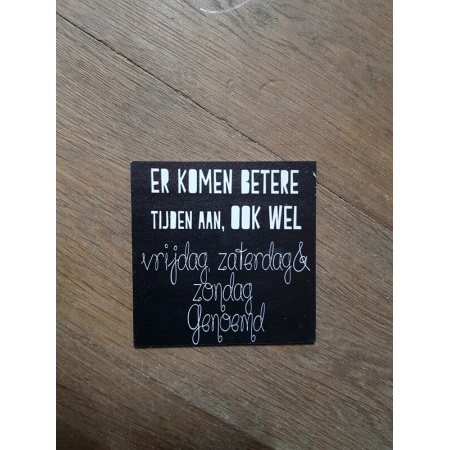 ER KOMEN BETERE
TIJDEN AAN, OOK WEL
vrijdag, zaterdag &
zondag
Genoemd